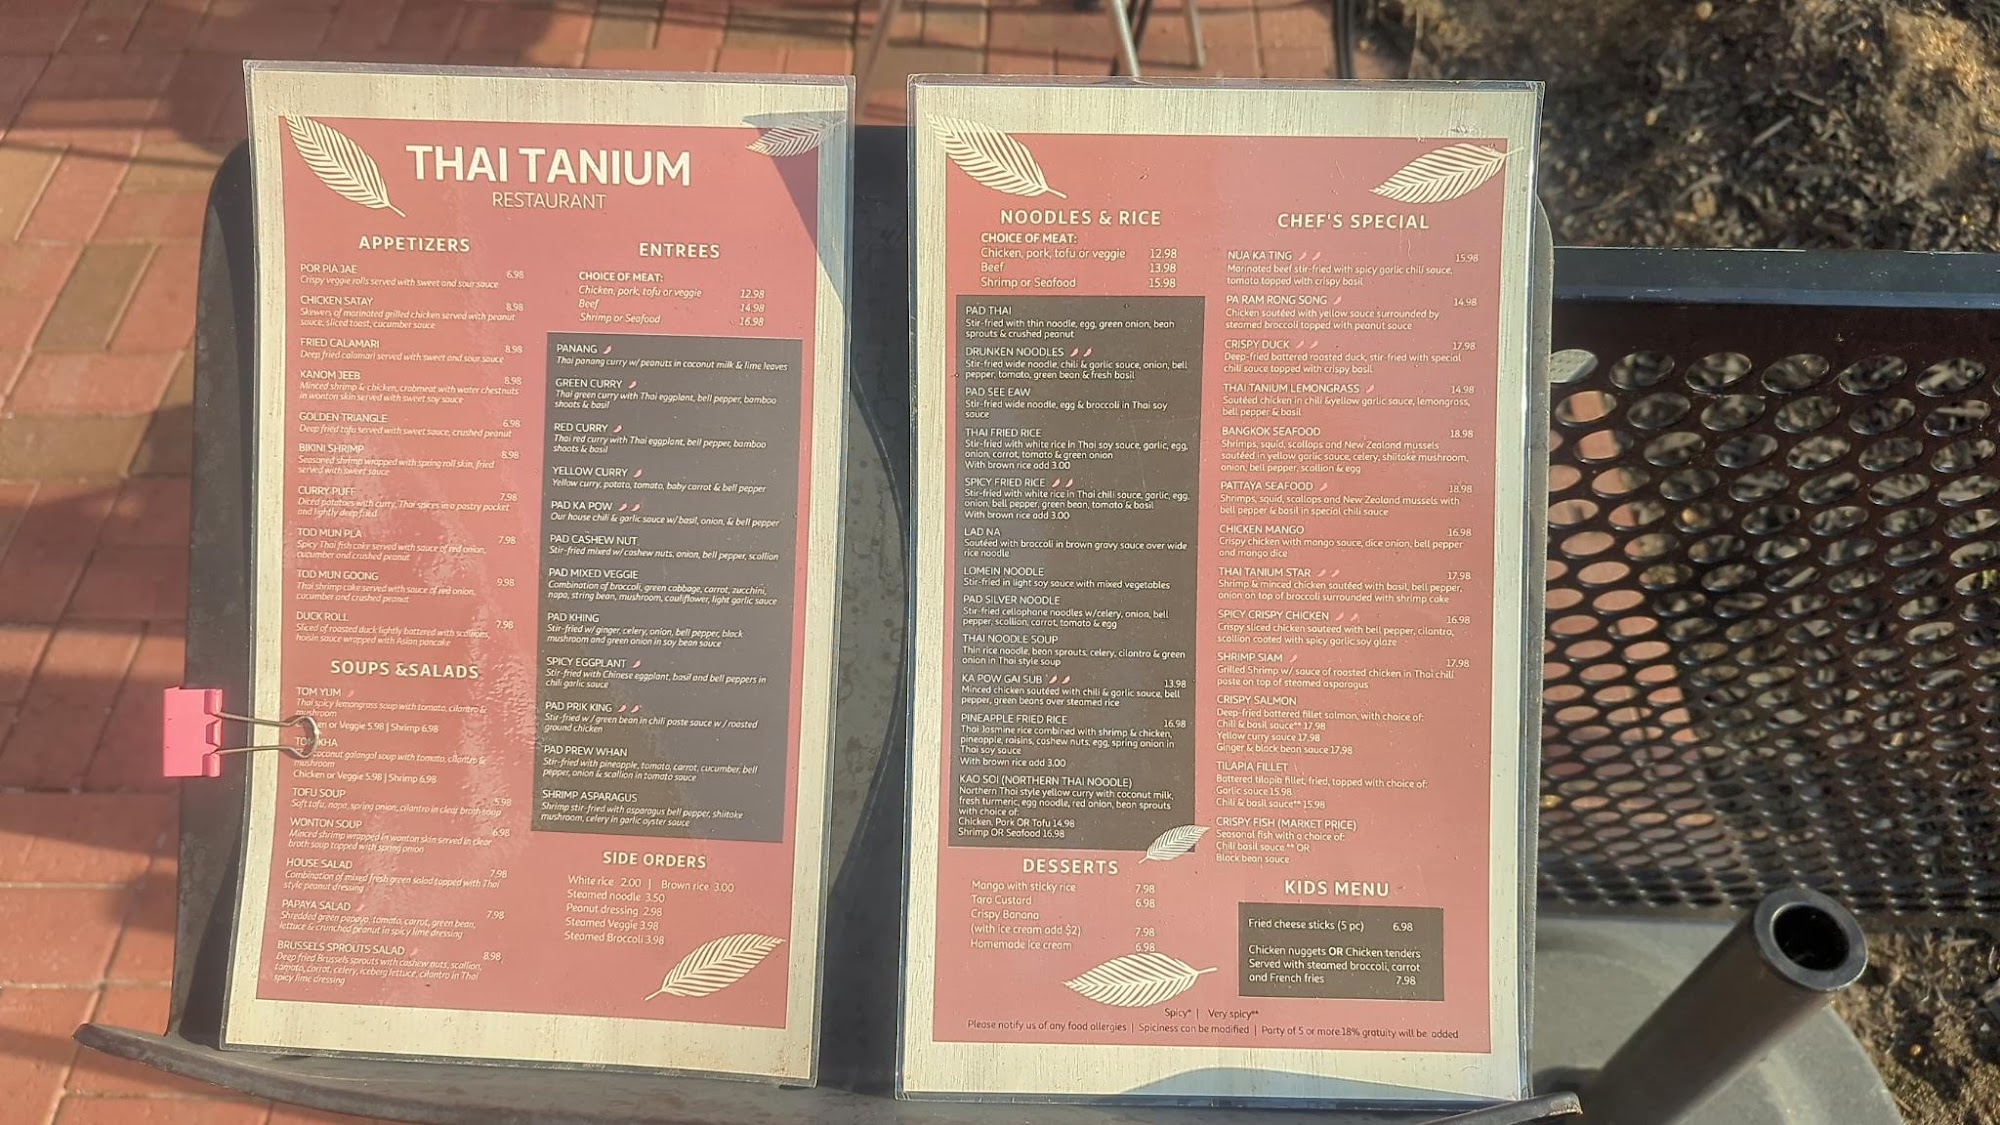 THAI TANIUM
RESTAURANT
APPETIZERS
POR PIA JAE 6.98
Crispy veggie rolls served with sweet and sour sauce
CHICKEN SATAY 8.98
Skewers of marinated grilled chicken served with peanut
sauce, sliced toast, cucumber sauce
FRIED CALAMARI 8.98
Deep fried calamari served with sweet and sour sauce
KANOM JEEB 8.98
Minced shrimp & chicken, crabmeat with water chestnuts
in wonton skin served with sweet soy sauce
GOLDEN TRIANGLE 6.98
Deep fried tofu served with sweet sauce, crushed peanut
BIKINI SHRIMP 8.98
Seasoned shrimp wrapped with spring roll skin, fried
served with sweet sauce
CURRY PUFF 7.98
Diced potatoes with curry, Thai spices in a pastry pocket
and lightly deep fried
TOD MUN PLA 7.98
Spicy Thai fish cake served with sauce of red onion,
cucumber and crushed peanut
TOD MUN GOONG 9.98
Thai shrimp cake served with sauce of red onion,
cucumber and crushed peanut
DUCK ROLL 7.98
Sliced of roasted duck lightly battered with scallions,
hoisin sauce wrapped with Asian pancake
SOUPS &SALADS
TOM YUM
Thai spicy lemongrass soup with tomato, cilantro &
mushroom
or Veggie 5.98 | Shrimp 6.98
TOM KHA
coconut galangal soup with tomato, cilantro &
mushroom
Chicken or Veggie 5.98 | Shrimp 6.98
TOFU SOUP 5.98
Soft tofu, napa, spring onion, cilantro in clear broth soup
WONTON SOUP 6.98
Minced shrimp wrapped in wonton skin served in clear
broth soup topped with spring onion
HOUSE SALAD 7.98
Combination of mixed fresh green salad topped with Thai
style peanut dressing
PAPAYA SALAD 7.98
Shredded green papaya, tomato, carrot, green bean,
lettuce & crunched peanut in spicy lime dressing
BRUSSELS SPROUTS SALAD 8.98
Deep fried Brussels sprouts with cashew nuts, scallion,
tomato, carrot, celery, iceberg lettuce, cilantro in Thai
spicy lime dressing
ENTREES
CHOICE OF MEAT:
Chicken, pork, tofu or veggie 12.98
Beef 14.98
Shrimp or Seafood 16.98
PANANG
Thai panang curry w/ peanuts in coconut milk & lime leaves
GREEN CURRY
Thai green curry with Thai eggplant, bell pepper, bamboo
shoots & basil
RED CURRY
Thai red curry with Thai eggplant, bell pepper, bamboo
shoots & basil
YELLOW CURRY
Yellow curry, potato, tomato, baby carrot & bell pepper
PAD KA POW
Our house chili & garlic sauce w/ basil, onion, & bell pepper
PAD CASHEW NUT
Stir-fried mixed w/ cashew nuts, onion, bell pepper, scallion
PAD MIXED VEGGIE
Combination of broccoli, green cabbage, carrot, zucchini,
napa, string bean, mushroom, cauliflower, light garlic sauce
PAD KHING
Stir-fried w/ ginger, celery, onion, bell pepper, black
mushroom and green onion in soy bean sauce
SPICY EGGPLANT
Stir-fried with Chinese eggplant, basil and bell peppers in
chili garlic sauce
PAD PRIK KING
Stir-fried w / green bean in chili paste sauce w / roasted
ground chicken
PAD PREW WHAN
Stir-fried with pineapple, tomato, carrot, cucumber, bell
pepper, onion & scallion in tomato sauce
SHRIMP ASPARAGUS
Shrimp stir-fried with asparagus bell pepper, shiitake
mushroom, celery in garlic oyster sauce
SIDE ORDERS
White rice 2.00 | Brown rice 3.00
Steamed noodle 3.50
Peanut dressing 2.98
Steamed Veggie 3.98
Steamed Broccoli 3.98
NOODLES & RICE
CHOICE OF MEAT:
Chicken, pork, tofu or veggie 12.98
Beef 13.98
Shrimp or Seafood 15.98
PAD THAI
Stir-fried with thin noodle, egg, green onion, bean
sprouts & crushed peanut
DRUNKEN NOODLES
Stir-fried wide noodle, chili & garlic sauce, onion, bell
pepper, tomato, green bean & fresh basil
PAD SEE EAW
Stir-fried wide noodle, egg & broccoli in Thai soy
sauce
THAI FRIED RICE
Stir-fried with white rice in Thai soy sauce, garlic, egg,
onion, carrot, tomato & green onion
With brown rice add 3.00
SPICY FRIED RICE
Stir-fried with white rice in Thai chili sauce, garlic, egg,
onion, bell pepper, green bean, tomato & basil
With brown rice add 3.00
LAD NA
Sautéed with broccoli in brown gravy sauce over wide
rice noodle
LOMEIN NOODLE
Stir-fried in light soy sauce with mixed vegetables
PAD SILVER NOODLE
Stir-fried cellophane noodles w/celery, onion, bell
pepper, scallion, carrot, tomato & egg
THAI NOODLE SOUP
Thin rice noodle, bean sprouts, celery, cilantro & green
onion in Thai style soup
KA POW GAI SUB 13.98
Minced chicken sautéed with chili & garlic sauce, bell
pepper, green beans over steamed rice
PINEAPPLE FRIED RICE 16.98
Thai Jasmine rice combined with shrimp & chicken,
pineapple, raisins, cashew nuts, egg, spring onion in
Thai soy sauce
With brown rice add 3.00
KAO SOI (NORTHERN THAI NOODLE)
Northern Thai style yellow curry with coconut milk,
fresh turmeric, egg noodle, red onion, bean sprouts
with choice of:
Chicken, Pork OR Tofu 14.98
Shrimp OR Seafood 16.98
DESSERTS
Mango with sticky rice 7.98
Taro Custard 6.98
Crispy Banana
(with ice cream add $2) 7.98
Homemade ice cream 6.98
CHEF'S SPECIAL
NUA KA TING 15.98
Marinated beef stir-fried with spicy garlic chili sauce,
tomato topped with crispy basil
PA RAM RONG SONG 14.98
Chicken sautéed with yellow sauce surrounded by
steamed broccoli topped with peanut sauce
CRISPY DUCK 17.98
Deep-fried battered roasted duck, stir-fried with special
chili sauce topped with crispy basil
THAI TANIUM LEMONGRASS 14.98
Sautéed chicken in chili &yellow garlic sauce, lemongrass,
bell pepper & basil
BANGKOK SEAFOOD 18.98
Shrimps, squid, scallops and New Zealand mussels
sautéed in yellow garlic sauce, celery, shiitoke mushroom,
onion, bell pepper, scallion & egg
PATTAYA SEAFOOD 18.98
Shrimps, squid, scallops and New Zealand mussels with
bell pepper & basil in special chili sauce
CHICKEN MANGO 16.98
Crispy chicken with mango sauce, dice onion, bell pepper
and mango dice
THAI TANIUM STAR 17.98
Shrimp & minced chicken sautéed with basil, bell pepper,
onion on top of broccoli surrounded with shrimp cake
SPICY CRISPY CHICKEN 16.98
Crispy sliced chicken sauteed with bell pepper, cilantro,
scallion coated with spicy garlic soy glaze
SHRIMP SIAM 17.98
Grilled Shrimp w/ sauce of roasted chicken in Thai chili
paste on top of steamed asparagus
CRISPY SALMON
Deep-fried battered fillet salmon, with choice of:
Chili & basil sauce** 17.98
Yellow curry sauce 17.98
Ginger & black bean sauce 17.98
TILAPIA FILLET
Battered tilapia fillet, fried, topped with choice of:
Garlic sauce 15.98
Chili & basil sauce** 15.98
CRISPY FISH (MARKET PRICE)
Seasonal fish with a choice of:
Chili basil sauce ** OR
Black bean sauce
KIDS MENU
Fried cheese sticks (5 pc) 6.98
Chicken nuggets OR Chicken tenders
Served with steamed broccoli, carrot
and French fries 7.98
Spicy* | Very spicy**
Please notify us of any food allergies | Spiciness can be modified | Party of 5 or more 18% gratuity will be added